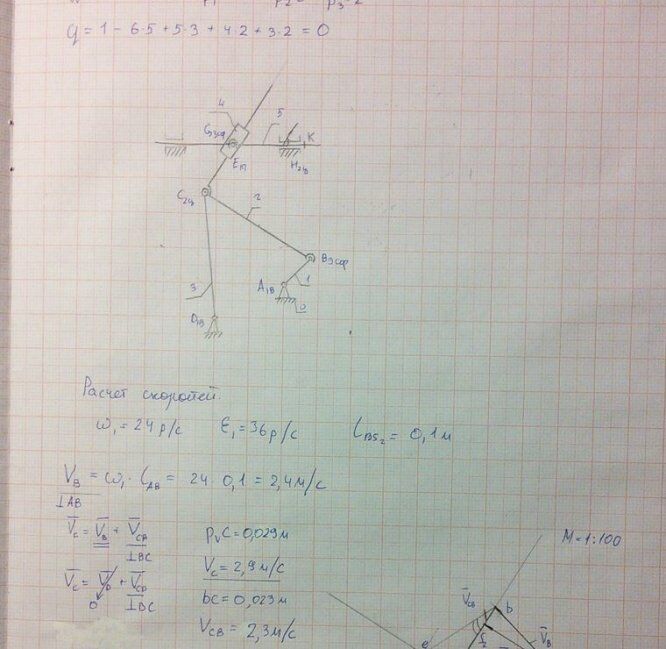 q = 1 - 6·5 + 5·3 + 4·2 + 3·2 = 0
4
5
K
E1п
H2ц
C2ц
2
B3сф
3
A1В
1
0
D1В
Расчет скоростей.
ω₁ = 24 р/с ε₁ = 36 р/с l_BS₂ = 0,1 м
V_B = ω₁ · l_AB = 24 · 0,1 = 2,4 м/с
⊥AB
V̄_C = V̄_B + V̄_CB
⊥BC
V̄_C = V̄_D + V̄_CD
0 ⊥DC
p_vc = 0,029 м
V_C = 2,9 м/с
bc = 0,023 м
V_CB = 2,3 м/с
M = 1:100
V̄_CB
b
V̄_B
e